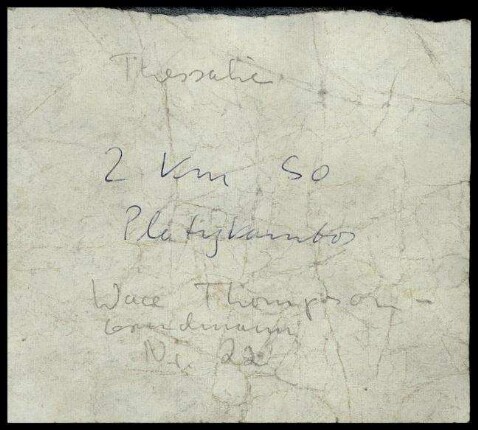 Thessalie
2 Km SO
Platykambos
Wace Thompson -
Grundmann
Nr. 22